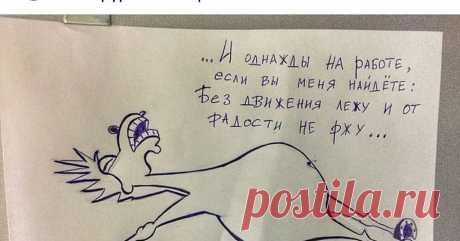 ... И ОДНАЖДЫ НА РАБОТЕ,
ЕСЛИ ВЫ МЕНЯ НАЙДЁТЕ:
БЕЗ ДВИЖЕНИЯ ЛЕЖУ И ОТ
РАДОСТИ НЕ РЖУ...
postila.ru